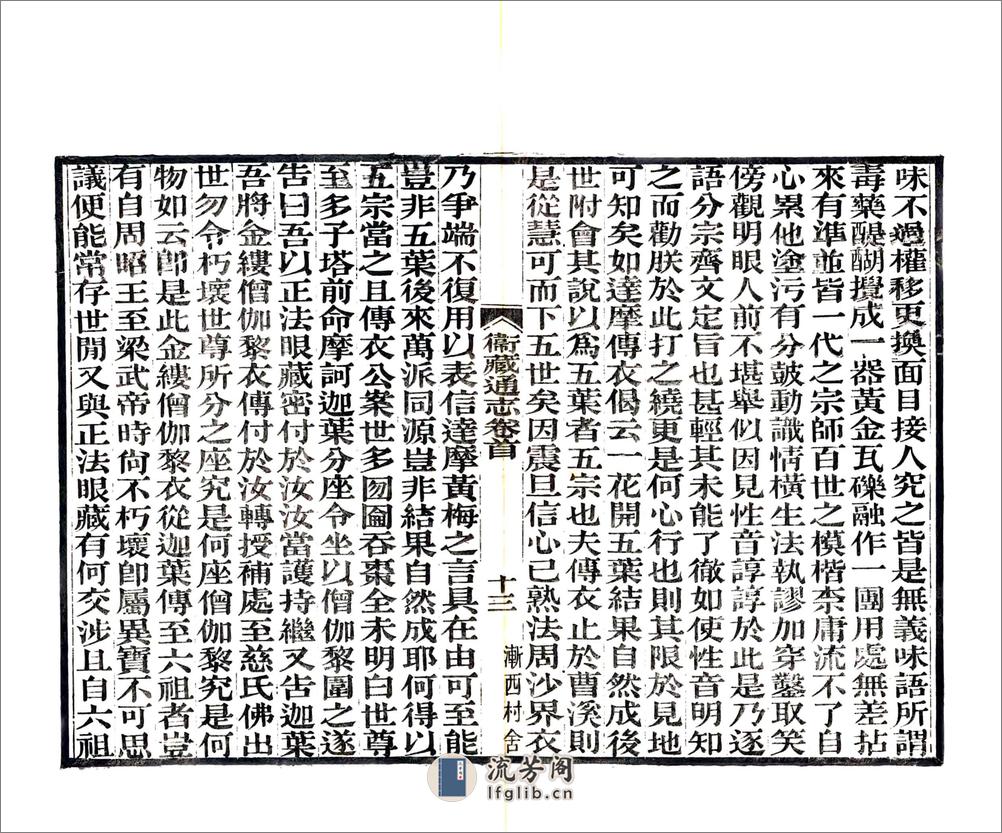 味不過權移更換面目接人究之皆是無義味語所謂
毒藥醍醐攪成一器黃金瓦礫融作一團用處無差拈
來有準並皆一代之宗師百世之模楷柰庸流不了自
心累他塗污有分皷動識情橫生法執謬加穿鑿取笑
傍觀明眼人前不堪舉似因見性音諄諄於此是乃逐
語分宗齊文定旨也甚輕其未能了徹如使性音明知
之而勸朕於此打之繞更是何心行也則其限於見地
可知矣如達摩傳衣偈云一花開五葉結果自然成後
世附會其說以為五葉者五宗也夫傳衣止於曹溪則
是從慧可而下五世矣因震旦信心已熟法周沙界衣
衞藏通志卷首
十三
漸西村舍
乃爭端不復用以表信達摩黃梅之言具在由可至能
豈非五葉後來萬派同源豈非結果自然成耶何得以
五宗當之且傳衣公案世多囫圇吞棗全未明白世尊
至多子塔前命摩訶迦葉分座令坐以僧伽黎圍之遂
吿曰吾以正法眼藏密付於汝汝當護持繼又吿迦葉
吾將金縷僧伽黎衣傳付於汝轉授補處至慈氏佛出
世勿令朽壞世尊所分之座究是何座僧伽黎究是何
物如云卽是此金縷僧伽黎衣從迦葉傳至六祖者豈
有自周昭王至梁武帝時尙不朽壞卽屬異寶不可思
議便能常存世閒又與正法眼藏有何交涉且自六祖
流芳阁
lfglib.cn